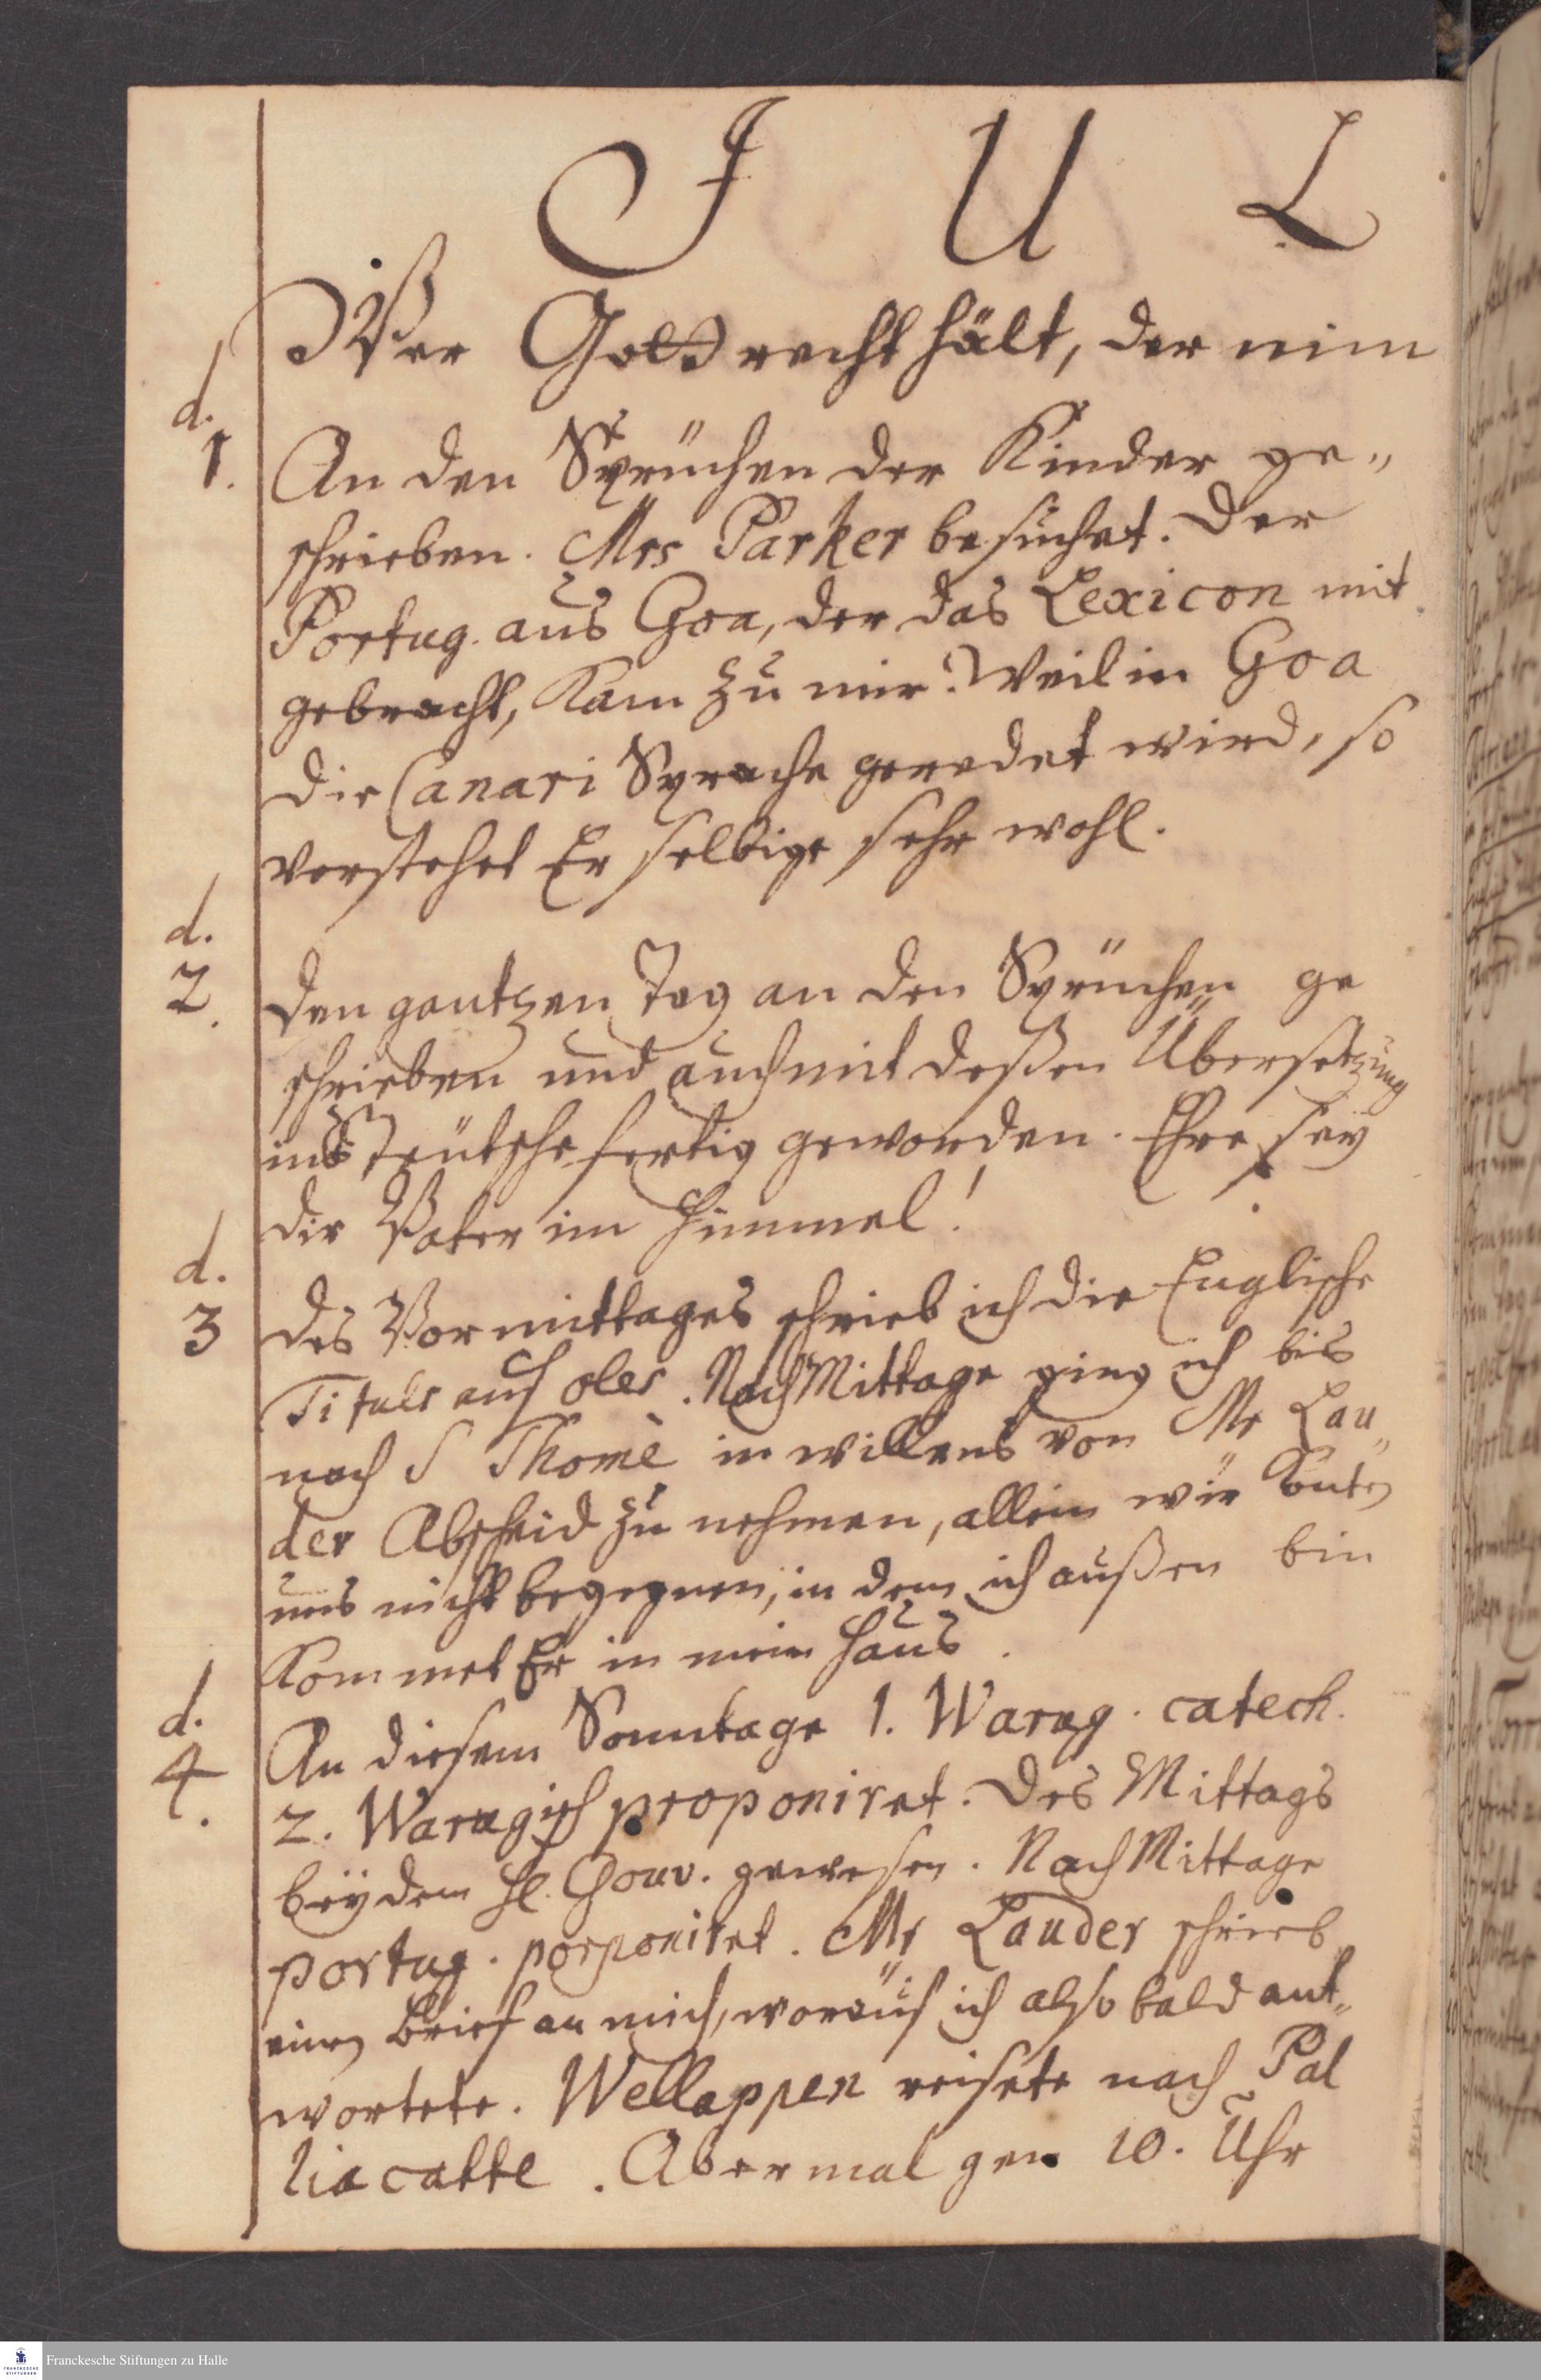 J U L
Wer Gott recht hält, der nim
d. 1. An den Sprüchen der Kinder ge„
schrieben. Mrs Parker besuchet. Der
Portug. aus Goa, der das Lexicon mit
gebracht, kam zu mir. Weil in Goa
die Canari Sprache geredet wird, so
verstehet Er selbige sehr wohl.
d. 2. Den gantzen Tag an den Sprüchen ge
schrieben und auch mit deßen Übersetzung
ins Teütsche fertig geworden. Ehre sey
dir Vater im Himmel!
d. 3 Des Vormittages schrieb ich die Englische
Tituls auf oles. Nach Mittage ging ich bis
nach S Thomè in willens von Mr Lau„
der Abscheid zu nehmen, allein wir konten
uns nicht begegnen, in dem ich außen bin
kommet Er in mein Haus.
d. 4. An diesem Sonntage 1. Warug. catech.
2. Warugisch proponiret. Des Mittags
bey dem H. Gouv. gewesen. Nach Mittage
portug. porponiret. Mr Lauder schrieb
einen Brief an mich, worauf ich also bald ant„
wortete. Wellappen reisete nach Pal
liacatte. Abermal gen 10. Uhr
Franckesche Stiftungen zu Halle